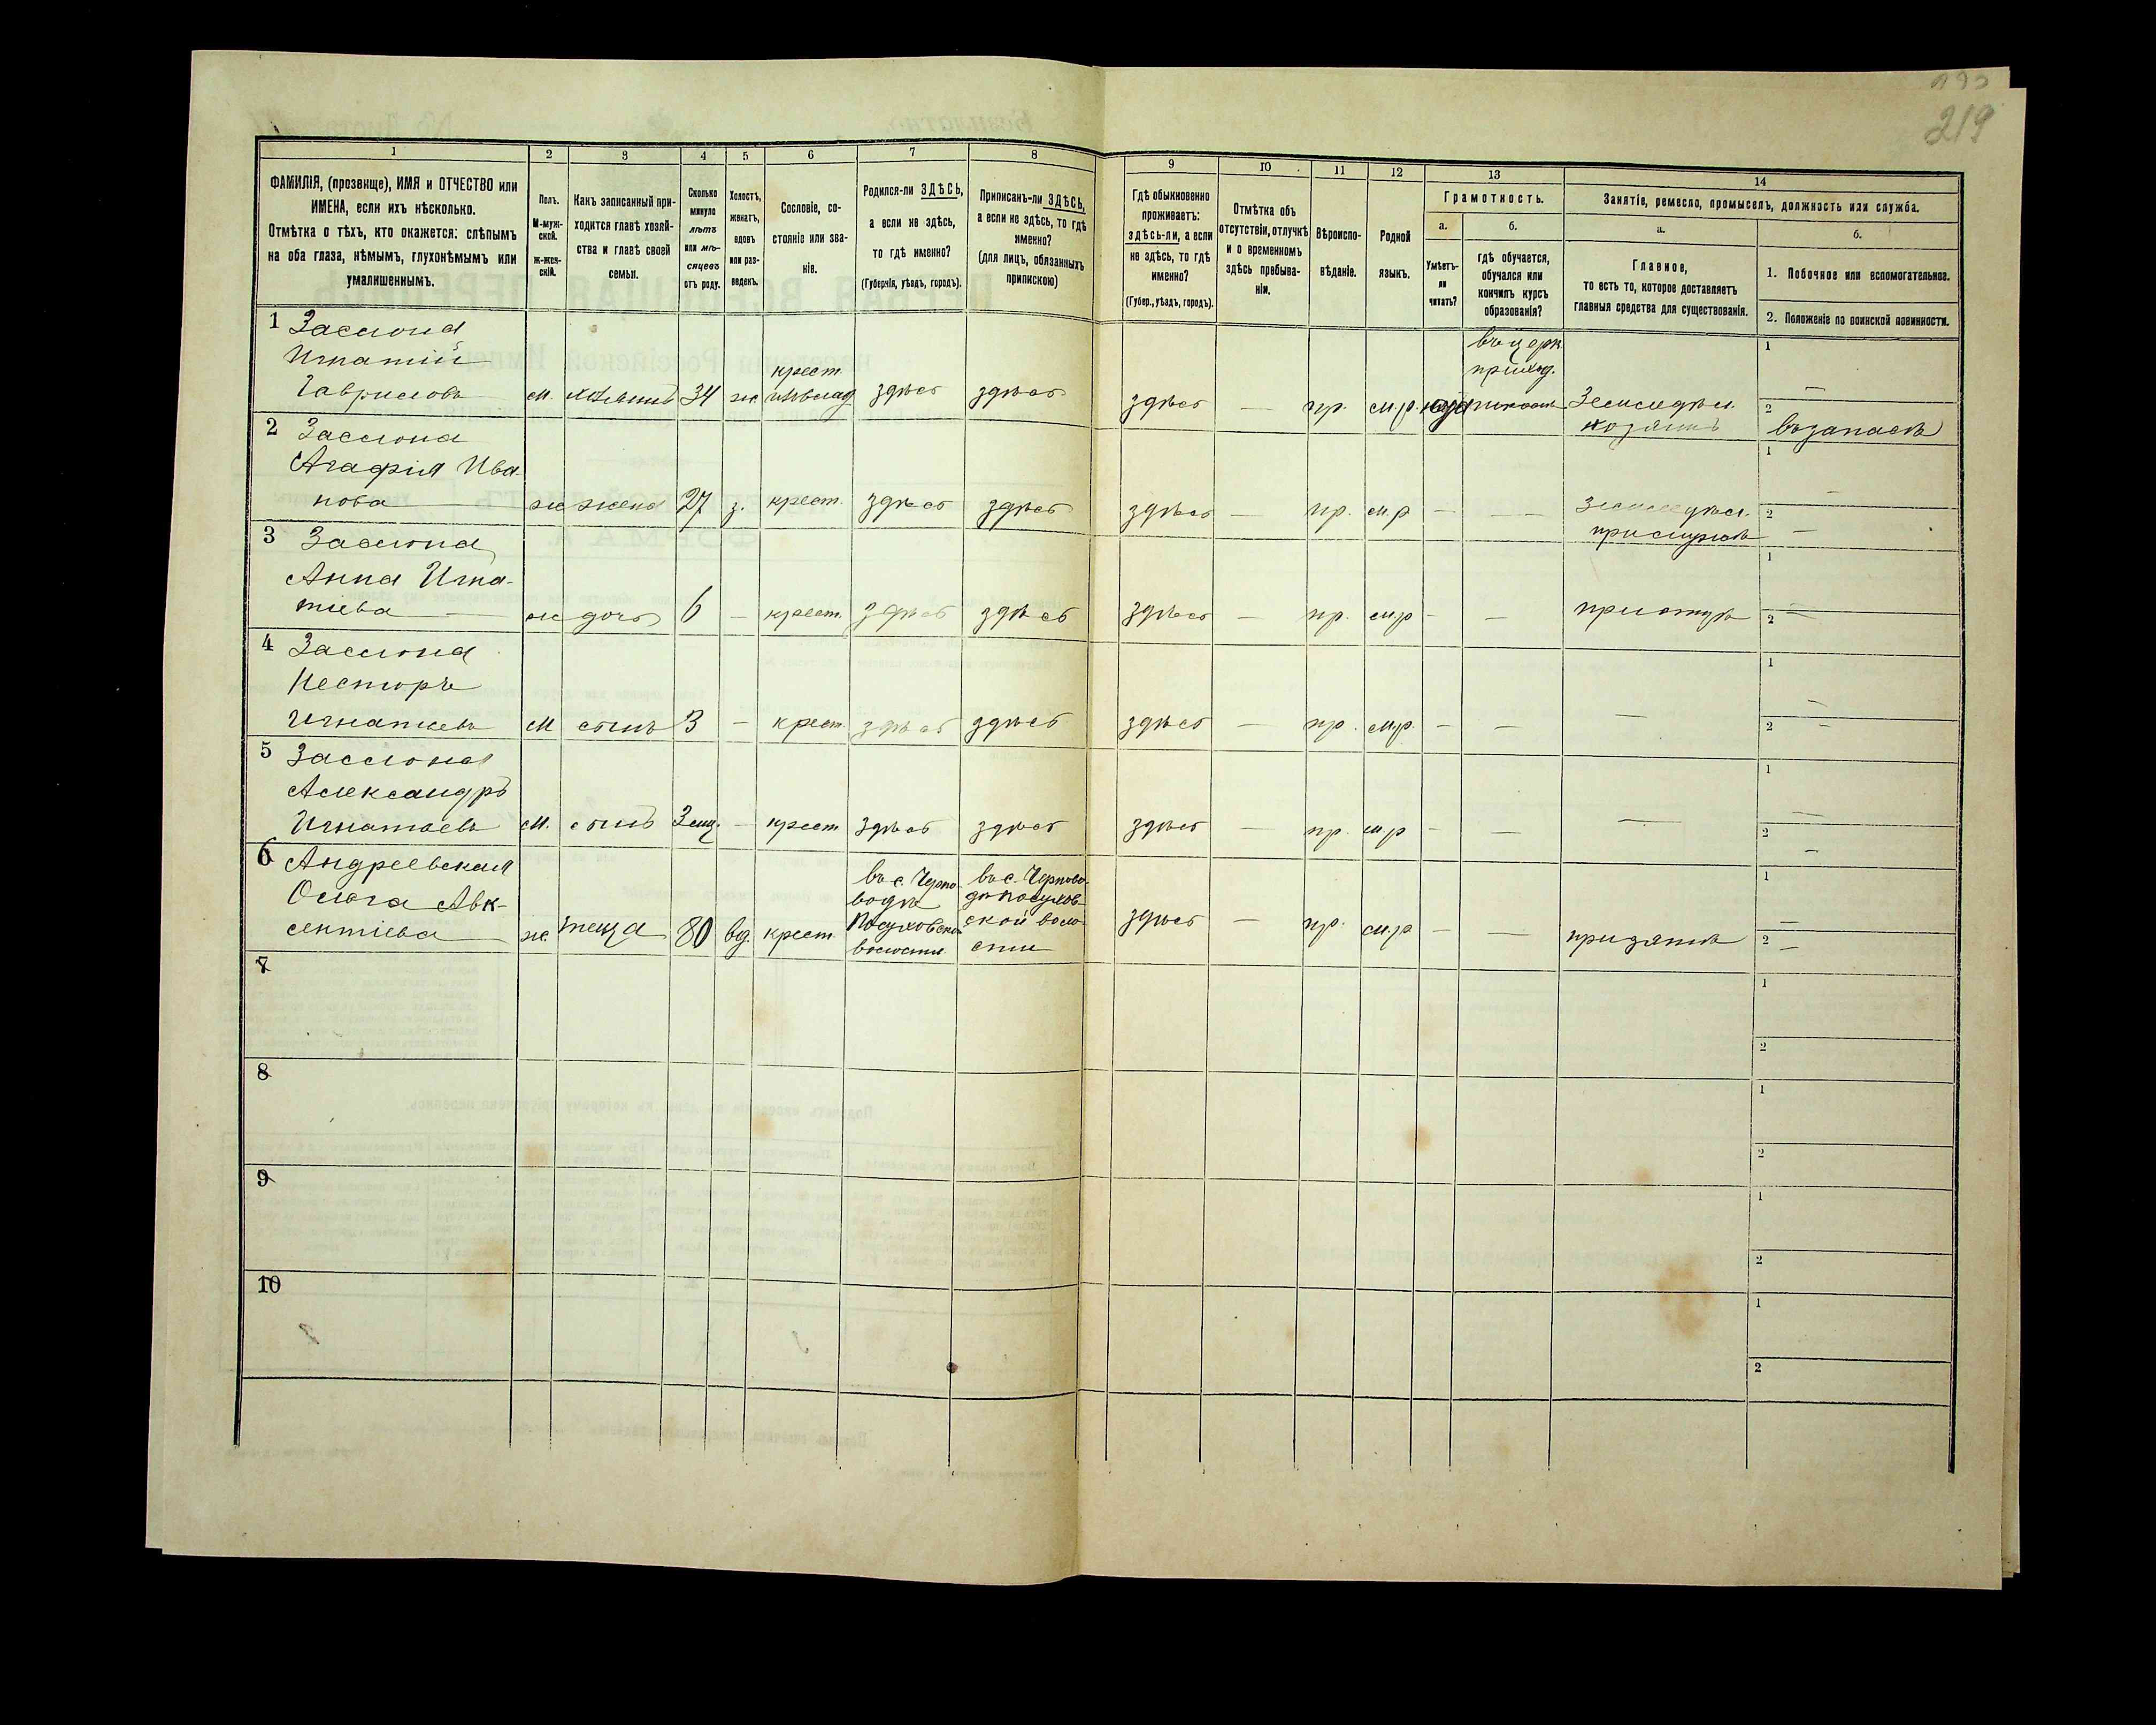 219
1 2 3 4 5 6 7 8 9 10 11 12 13 14
ФАМИЛІЯ, (прозвище), ИМЯ и ОТЧЕСТВО или
ИМЕНА, если ихъ нѣсколько.
Отмѣтка о тѣхъ, кто окажется: слѣпымъ
на оба глаза, нѣмымъ, глухонѣмымъ или
умалишеннымъ.
Полъ.
М-муж-
ской.
Ж-жен-
скій.
Какъ записанный при-
ходится главѣ хозяй-
ства и главѣ своей
семьи.
Сколько
минуло
лѣтъ
или мѣ-
сяцевъ
отъ роду.
Холостъ,
женатъ,
вдовъ
или раз-
веденъ.
Сословіе, со-
стояніе или зва-
ніе.
Родился-ли ЗДѢСЬ,
а если не здѣсь,
то гдѣ именно?
(Губернія, уѣздъ, городъ).
Приписанъ-ли ЗДѢСЬ,
а если не здѣсь, то гдѣ
именно?
(для лицъ, обязанныхъ
припискою)
Гдѣ обыкновенно
проживаетъ:
здѣсь-ли, а если
не здѣсь, то гдѣ
именно?
(Губер., уѣздъ, городъ).
Отмѣтка объ
отсутствіи, отлучкѣ
и о временномъ
здѣсь пребыва-
ніи.
Вѣроиспо-
вѣданіе.
Родной
языкъ.
Грамотность.
а. б.
Умѣетъ-
ли
читать?
гдѣ обучается,
обучался или
кончилъ курсъ
образованія?
Занятіе, ремесло, промыселъ, должность или служба.
а. б.
Главное,
то есть то, которое доставляетъ
главныя средства для существованія.
1. Побочное или вспомогательное.
2. Положеніе по воинской повинности.
1 Заслона
Игнатій
Гаврилова м. хозяинъ 34 ж крест. здѣсь здѣсь здѣсь — пр. м.р. въ церк. приход. Земледѣл. 1 —
хозяинъ 2 въ запасѣ
2 Заслона
Агафія Ива
нова ж жена 27 з. крест. здѣсь здѣсь здѣсь — пр. м.р — — Земледѣл. 1 —
при мужѣ 2 —
3 Заслона
Анна Игна-
тіева ж дочь 6 — крест. здѣсь здѣсь здѣсь — пр. м.р — — при отцѣ 1 — 2
4 Заслона
Несторъ
Игнатьевъ м сынъ 3 — крест. здѣсь здѣсь здѣсь — пр. м.р. — — — 1 — 2 —
5 Заслона
Александръ
Игнатьевъ м. сынъ крест здѣсь здѣсь здѣсь — пр. м.р — — — 1 — 2 —
6 Андреевская
Ольга Авк-
сентіева ж. теща 80 вд. крест. въ с. Черно-
водѣ
волости въ с. Черново-
дѣ
ской воло-
сти здѣсь — пр. м.р — — при зятѣ 1 — 2 —
7 1 2
8 1 2
9 1 2
10 1 2